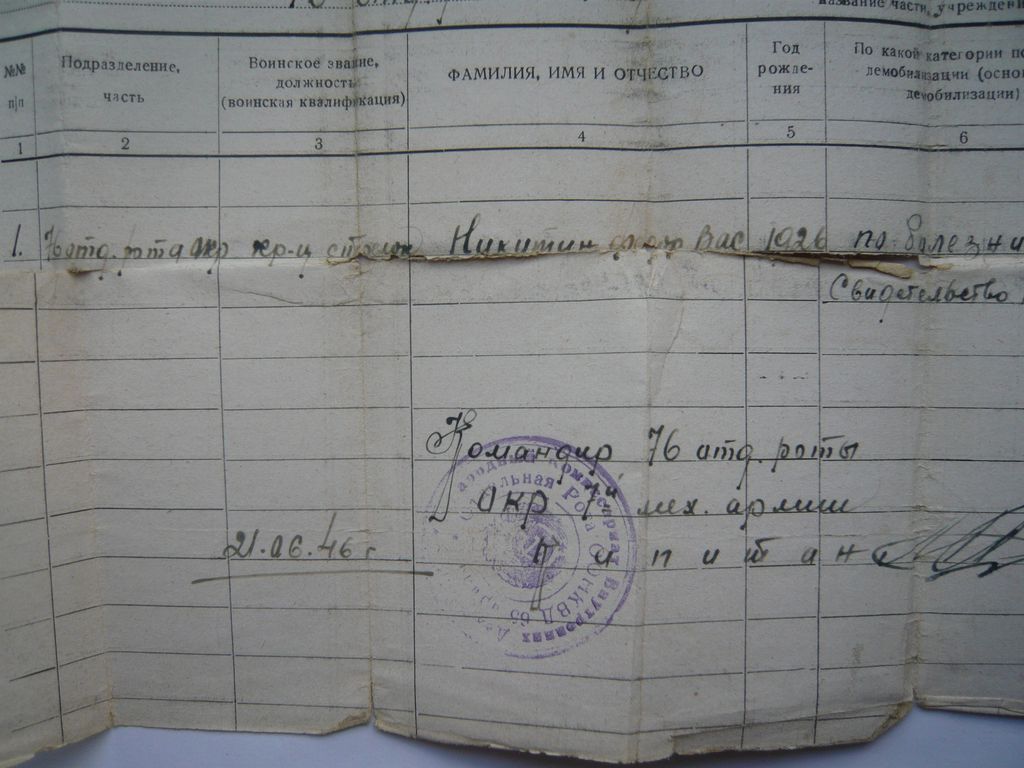 название части, учрежден
№№ п/п
Подразделение, часть
Воинское звание, должность (воинская квалификация)
ФАМИЛИЯ, ИМЯ И ОТЧЕСТВО
Год рожде-ния
По какой категории по демобилизации (осно демобилизации)
1 2 3 4 5 6
1. отд. рота окр кр-ц стрелок Никитин Вас 1926 по болезни
Свидетельство
Командир 76 отд. роты
окр 7й мех. армии
Капитан
21.06.46 г
Народный Комиссариат Внутренних Дел
Рота ОНКВД